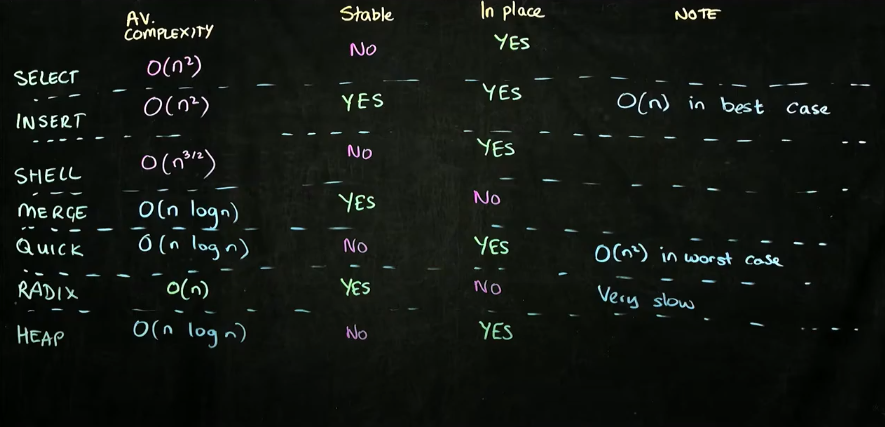 AV. COMPLEXITY Stable In place NOTE
SELECT O(n²) NO YES
INSERT O(n²) YES YES O(n) in best case
SHELL O(n^3/2) NO YES
MERGE O(n logn) YES NO
QUICK O(n logn) NO YES O(n²) in worst case
RADIX O(n) YES NO Very slow
HEAP O(n logn) NO YES